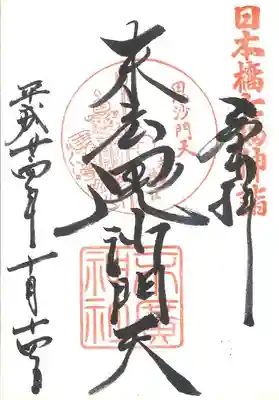 日本橋七福神詣
奉拝
毘沙門天
末広毘沙門天
末廣神社
平成廿四年十月十四日